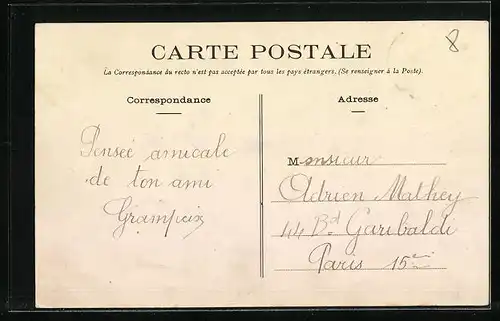 8
CARTE POSTALE
La Correspondance du recto n'est pas acceptée par tous les pays étrangers. (Se renseigner à la Poste).
Correspondance
Pensée amicale
de ton ami
Grampeix
Adresse
Monsieur
Adrien Mathey
44 Bd Garibaldi
Paris 15ème